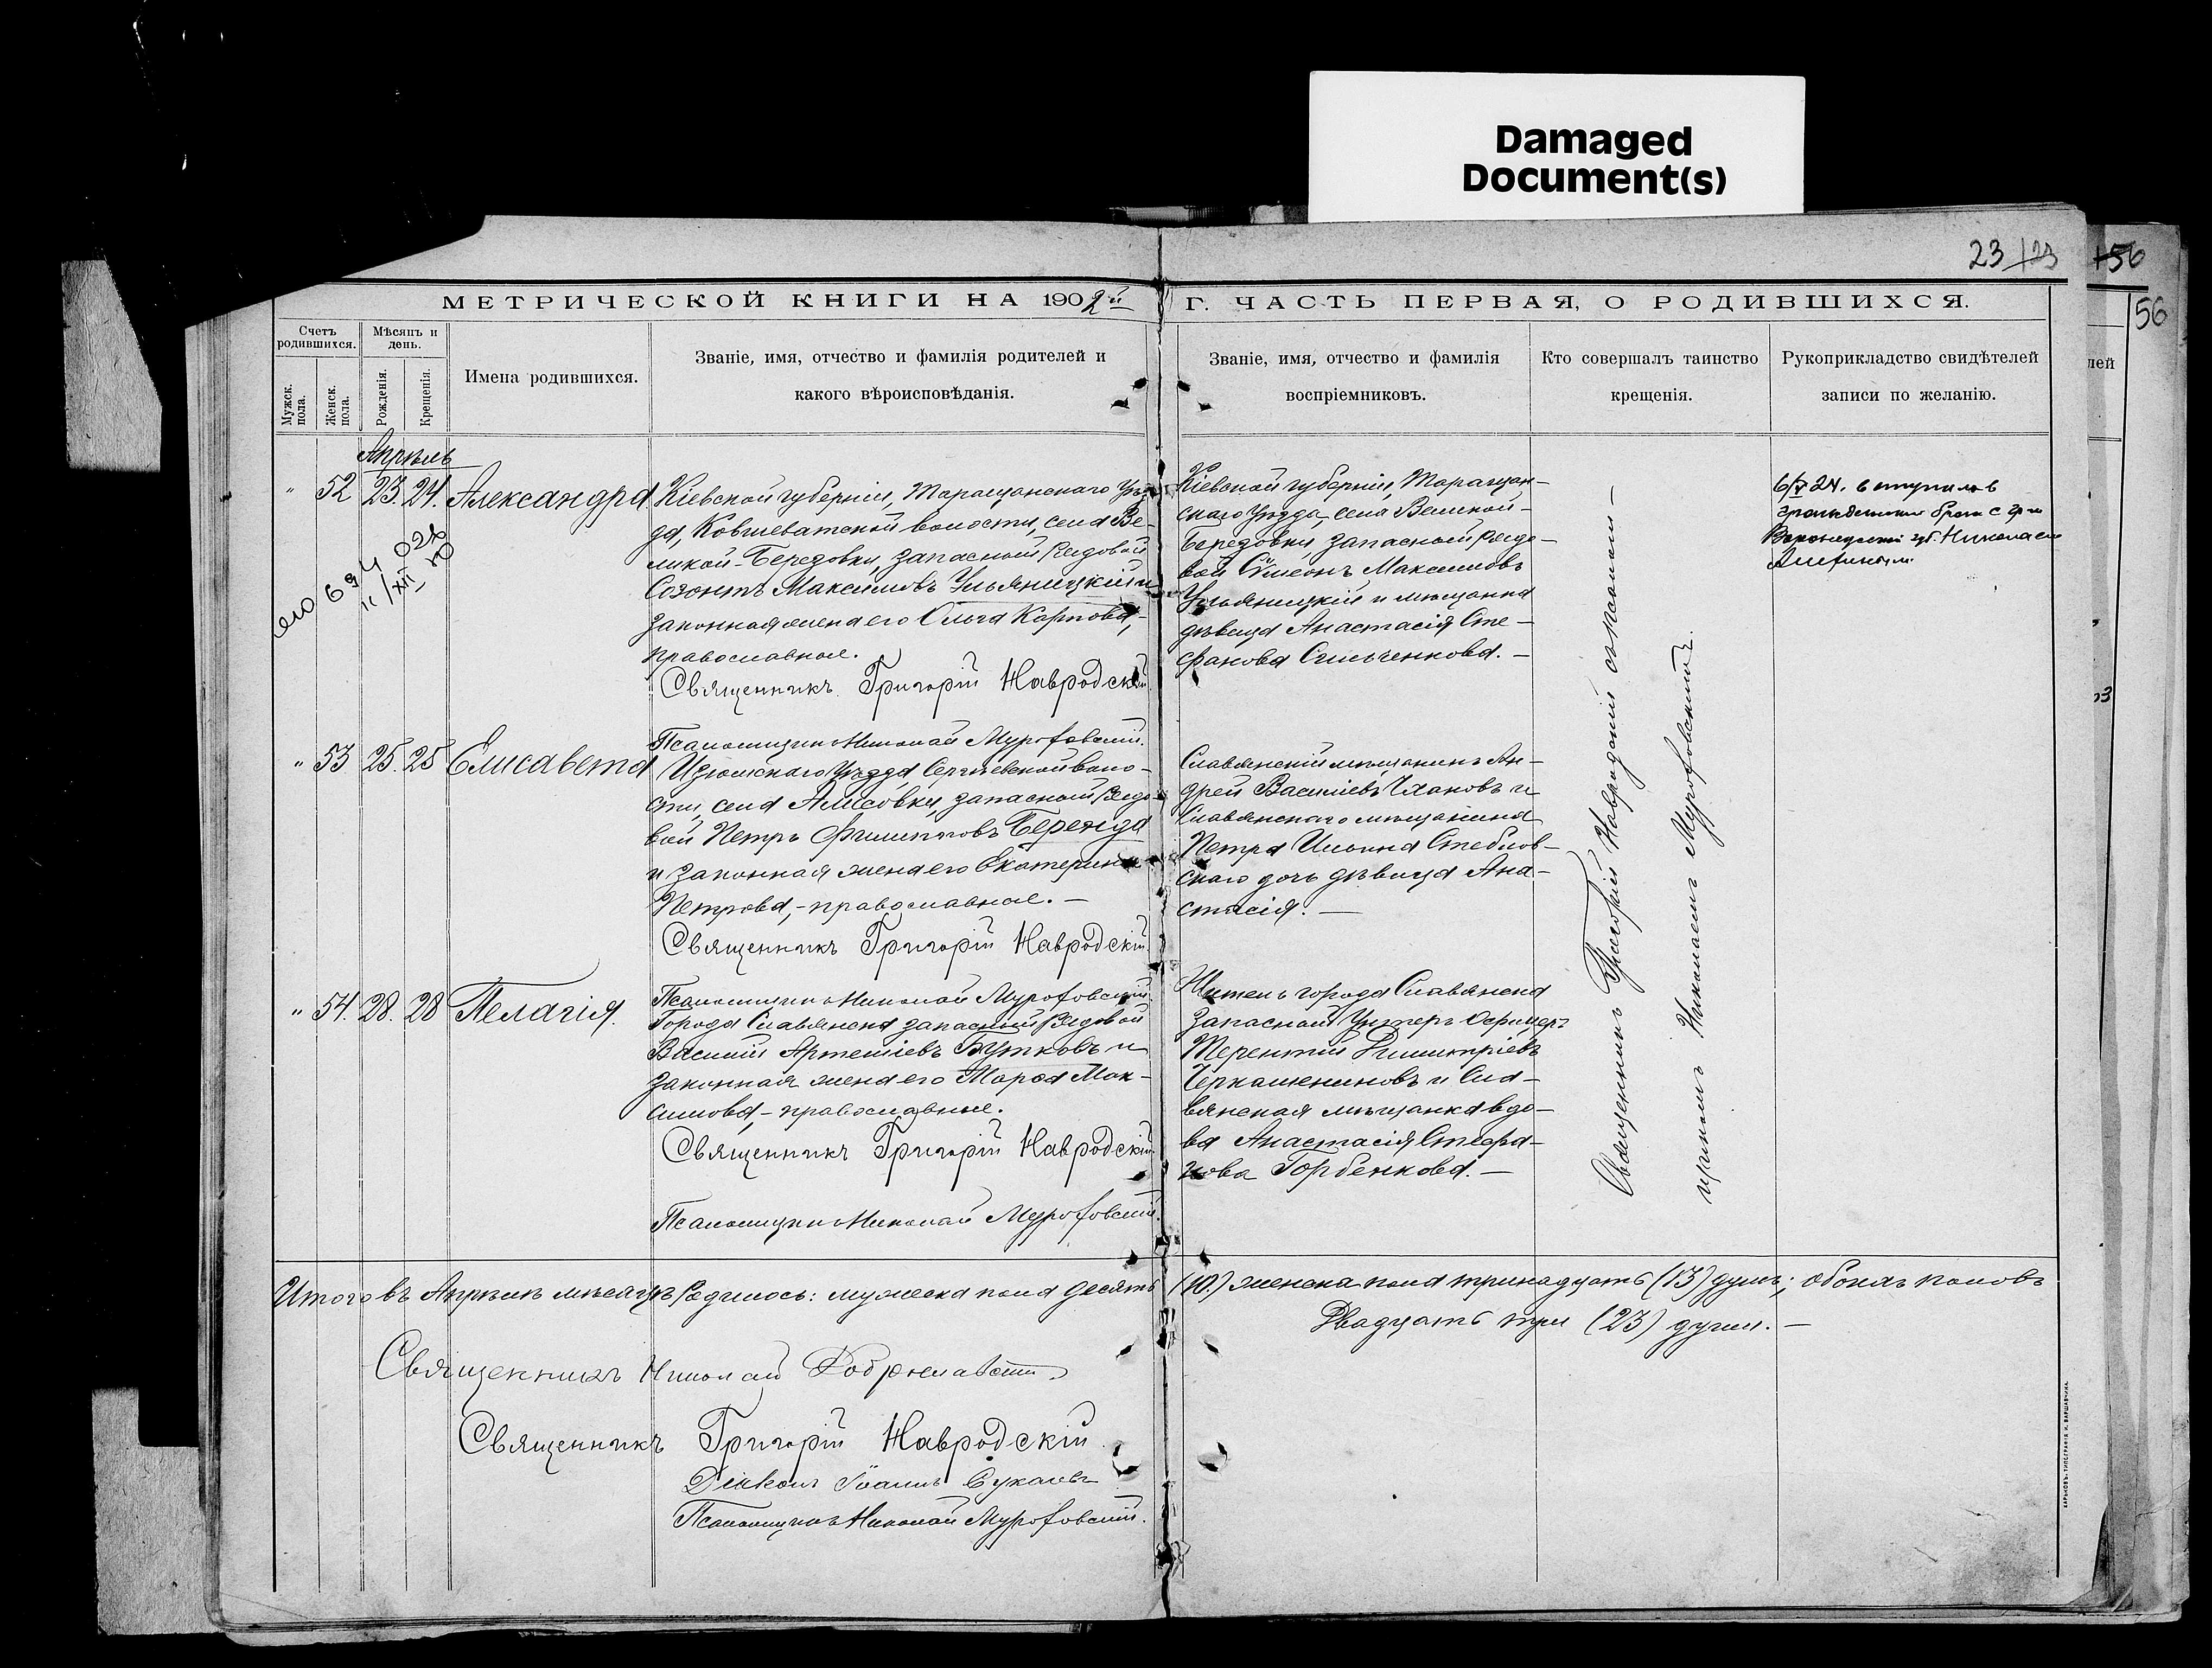 Damaged
Document(s)
23 / 23
156
56
МЕТРИЧЕСКОЙ КНИГИ НА 1902й Г. ЧАСТЬ ПЕРВАЯ, О РОДИВШИХСЯ.
Счетъ родившихся.
Мужск. пола.
Женск. пола.
Мѣсяцъ и день.
Рожденія.
Крещенія.
Имена родившихся.
Званіе, имя, отчество и фамилія родителей и
какого вѣроисповѣданія.
Званіе, имя, отчество и фамилія
воспріемниковъ.
Кто совершалъ таинство
крещенія.
Рукоприкладство свидѣтелей
записи по желанію.
лей
Апрѣль
" 52 23. 24. Александра
Кіевской губерніи, Таращанскаго Уѣз-
да, Ковшеватской волости, села Ве-
ликой-Березовки, запасный Рядовой
Созонтъ Максимовъ Ульяницкій и
законная жена его Ольга Карпова,
православные.
Священникъ Григорій Навродскій
Псаломщикъ Николай Мурофовскій.
Кіевской губерніи, Таращан-
скаго Уѣзда, села Великой-
Березовки, запасный рядо-
вой Сѵмеонъ Максимовъ
Ульяницкій и мѣщанка
дѣвица Анастасія Сте-
фанова Сильченкова. —
6/V 24. вступила в
гражданский брак с гр-м
Воронежской губ. Николаем
694 028
11/XII
" 53 25. 25 Елисавета
Изюмскаго Уѣзда, Сергіевской воло-
сти, села Алисовки, запасный Рядо-
вой Петръ Филипповъ Беренда
и законная жена его Екатерина
Петрова,- православные. —
Священникъ Григорій Навродскій
Псаломщикъ Николай Мурофовскій.
Славянскій мѣщанинъ Ан-
дрей Василіевъ и
Славянскаго мѣщанина
Петра Ильина Стеблов-
скаго дочь дѣвица Ана-
стасія. —
" 54. 28. 28 Пелагія.
Города Славянска запасный Рядовой
Василій Артеміевъ Бутковъ и
законная жена его Марѳа Мак-
симова,- православные.
Священникъ Григорій Навродскій
Псаломщикъ Николай Мурофовскій.
Житель города Славянска
запасный Унтеръ Офицеръ
Терентій Димитріевъ
Черкашениновъ и Сла-
вянская мѣщанка вдо-
ва Анастасія Стефа-
нова Горбенкова. —
Священникъ Григорій Навродскій съ псалом-
щикомъ Николаемъ Мурофовскимъ.
Итого въ Апрѣлѣ мѣсяцѣ Родилось: мужеска пола десять (10.) женска пола тринадцать (13) душъ; обоихъ половъ
Двадцать три (23) души. —
Священникъ Николай Доброславскій
Священникъ Григорій Навродскій
Діаконъ Іоаннъ
Псаломщикъ Николай Мурофовскій.
ХАРЬКОВЪ. ТИПОГРАФІЯ И. ВАРШАВЧИКА.